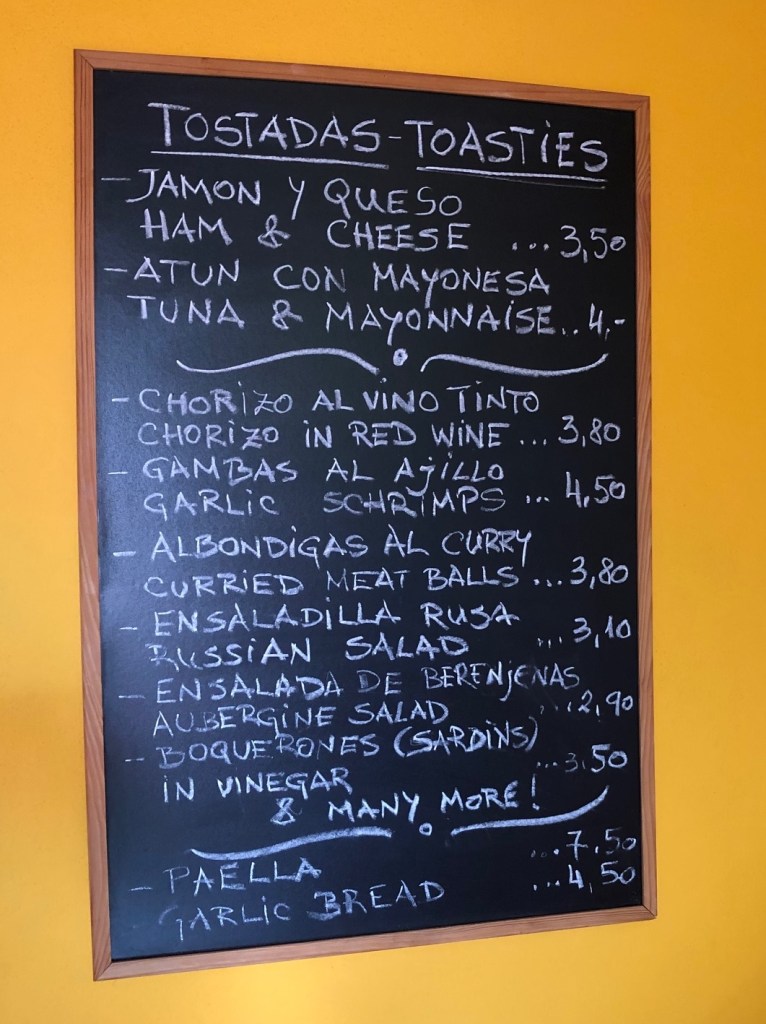 TOSTADAS - TOASTIES
- JAMON Y QUESO
HAM & CHEESE ... 3,50
- ATUN CON MAYONESA
TUNA & MAYONNAISE.. 4,-
- CHORIZO AL VINO TINTO
CHORIZO IN RED WINE ... 3,80
- GAMBAS AL AJILLO
GARLIC SCHRIMPS ... 4,50
- ALBONDIGAS AL CURRY
CURRIED MEAT BALLS ... 3,80
- ENSALADILLA RUSA
RUSSIAN SALAD ... 3,10
- ENSALADA DE BERENJENAS
AUBERGINE SALAD ..2,90
- BOQUERONES (SARDINS)
IN VINEGAR ...3,50
& MANY MORE!
- PAELLA ...7,50
GARLIC BREAD ...4,50